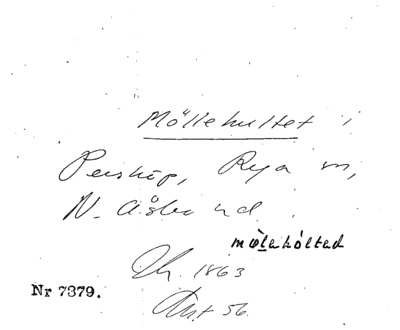 Möllehultet i
Perstöp, Rya sn,
N. Åsbo hd.
mø̀lehól̀ted
1863
Nr 7379.
56.